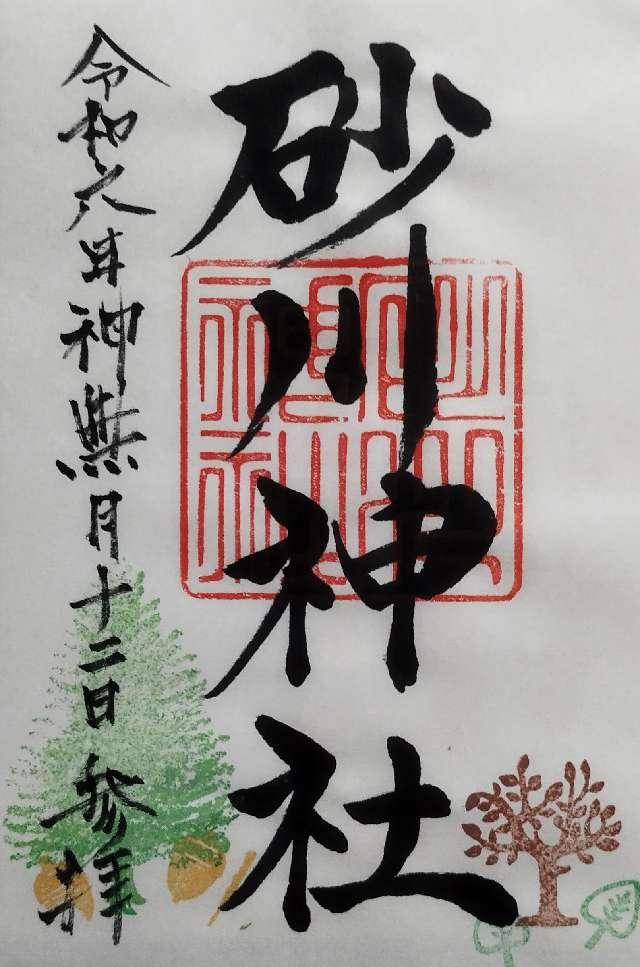 砂川神社
令和六年神無月十二日参拝